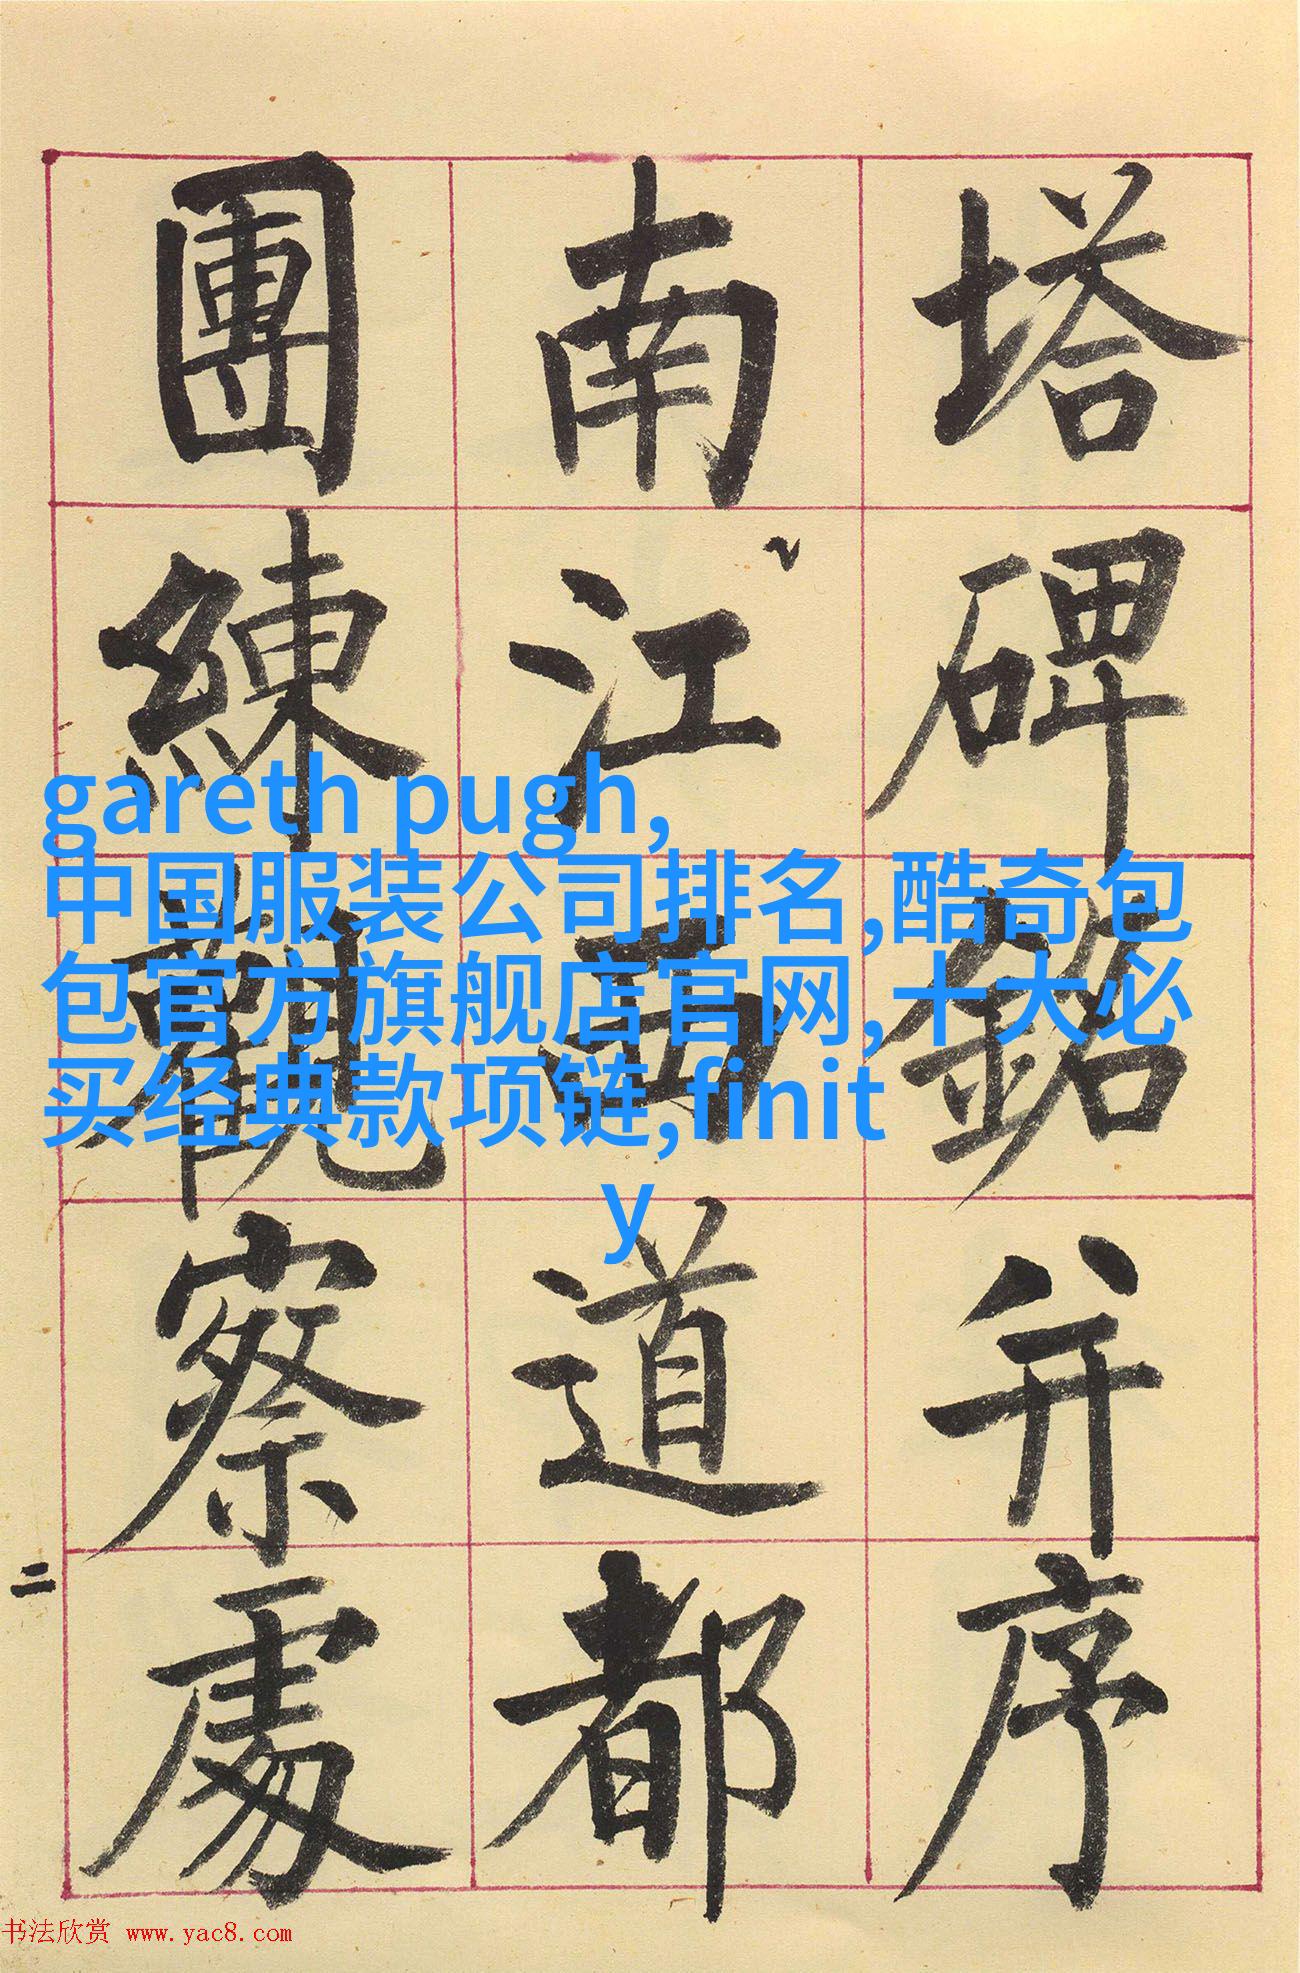 塔碑銘并序
南江西道都
團練觀察處
二
gareth pugh,
中国服装公司排名,酷奇包
包官方旗舰店官网,十大必
买经典款项链,finit
y
书法欣赏 www.yac8.com